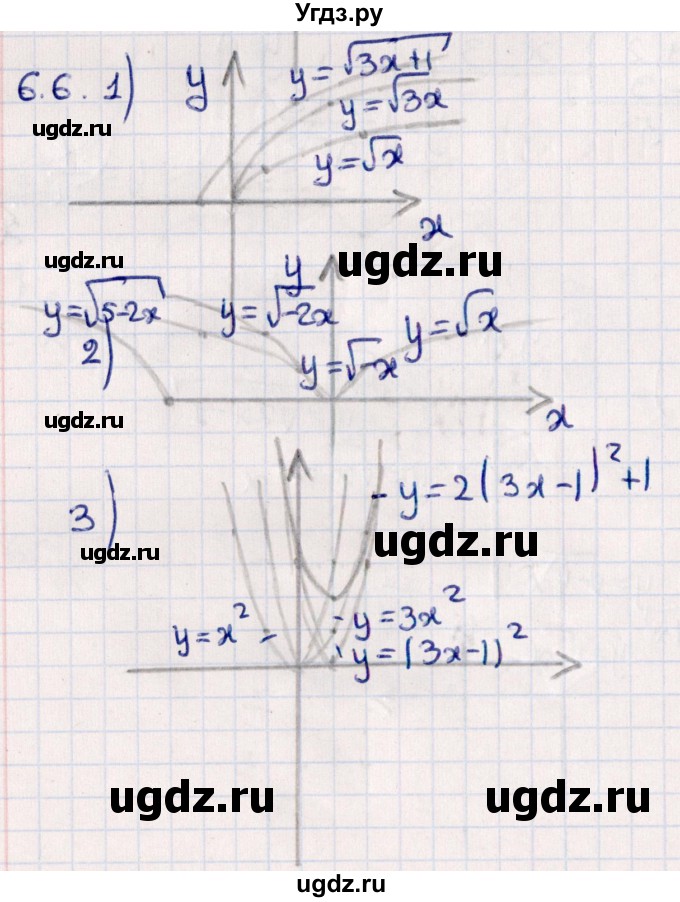 Угдз.ру
6.6. 1) y y=√3x+1
y=√3x
ugdz.ru
y=√x
x
ugdz.ru ugdz.ru
y
y=√5-2x y=√-2x y=√x
2)
y=√-x
ugdz.ru x
3) - y=2(3x-1)²+1
ugdz.ru ugdz.ru
y=x² - - y=3x²
y=(3x-1)²
ugdz.ru ugdz.ru
ugdz.ru